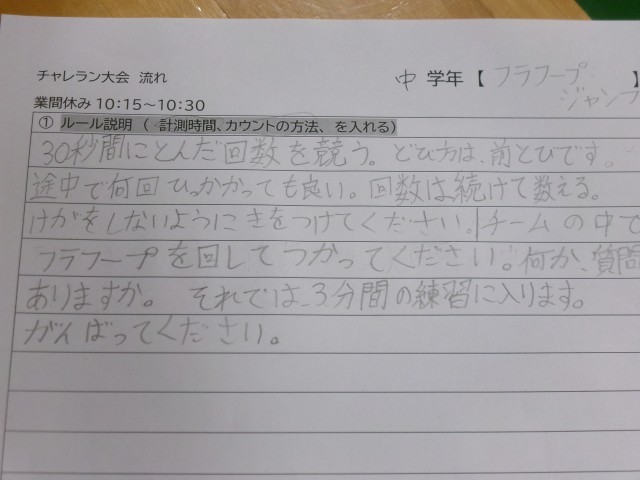 チャレラン大会 流れ
中 学年 【 フラフープ
ジャンプ 】
業間休み 10:15～10:30
① ルール説明 ( 計測時間、カウントの方法、を入れる)
30秒間にとんだ回数を競う。とび方は、前とびです。
途中で何回ひっかかっても良い。回数は続けて数える。
けがをしないようにきをつけてください。チームの中で
フラフープを回してつかってください。何か、質問
ありますか。 それでは、3分間の練習に入ります。
がんばってください。